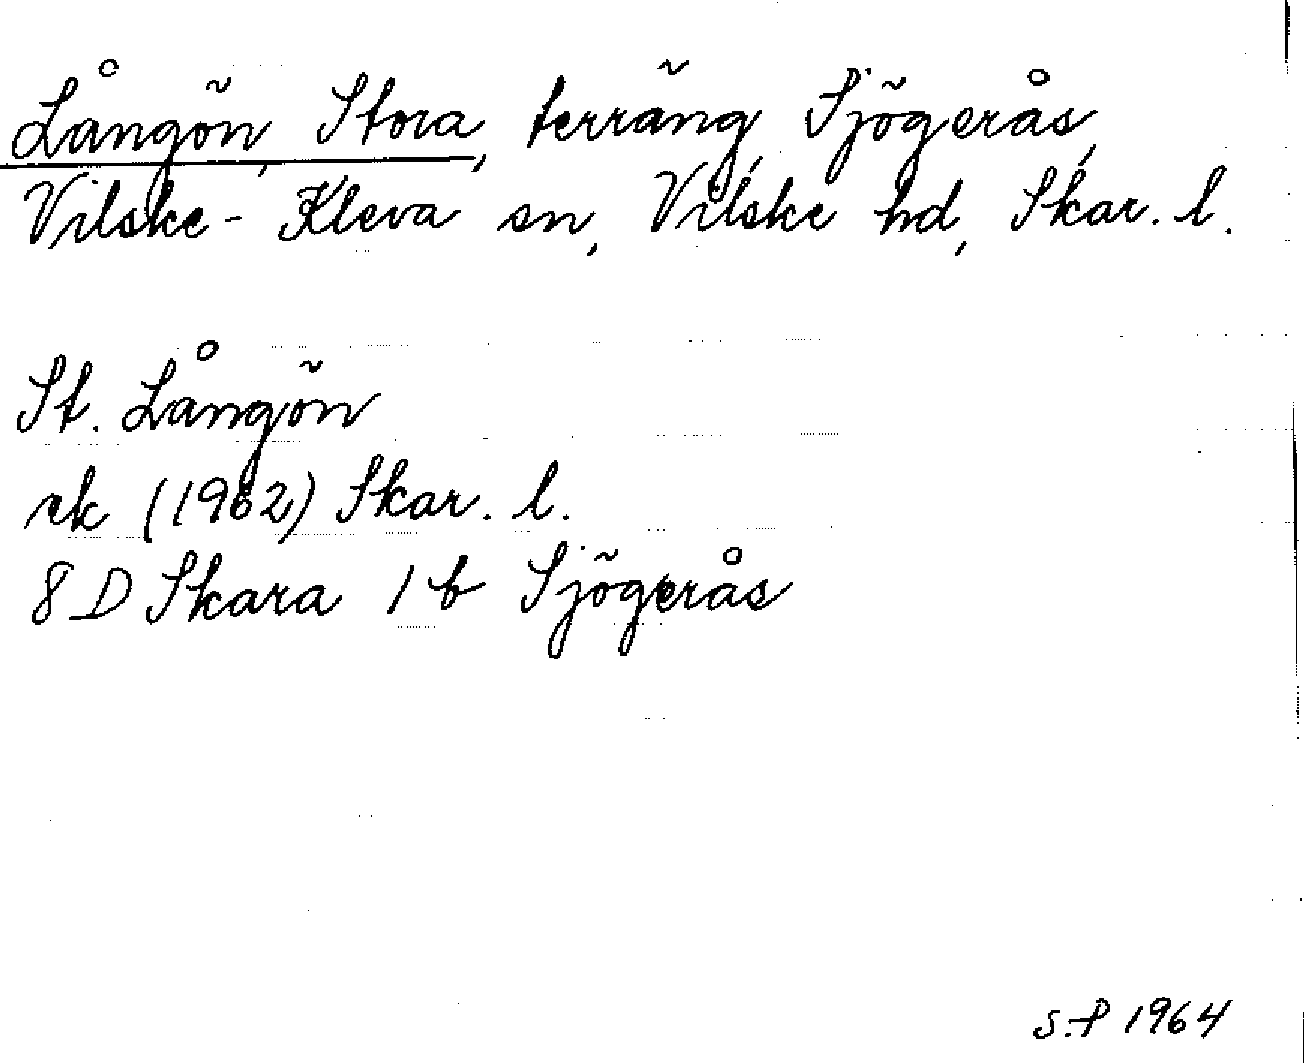 Långön, Stora, terräng, Sjögerås,
Vilske-Kleva sn, Vilske hd, Skar. l.
St. Långön
rk (1962) Skar. l.
8 D Skara 1 b Sjögerås
S.P 1964